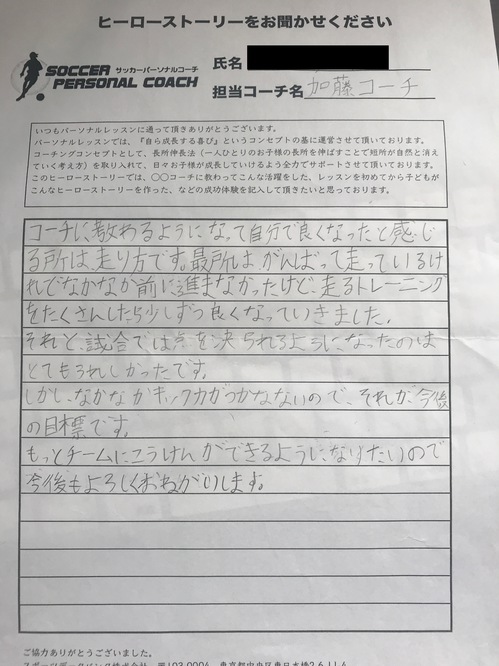 ヒーローストーリーをお聞かせください
SOCCER サッカーパーソナルコーチ
PERSONAL COACH
氏名
担当コーチ名 加藤コーチ
いつもパーソナルレッスンに通って頂きありがとうございます。
パーソナルレッスンでは、『自ら成長する喜び』というコンセプトの基に運営させて頂いております。
コーチングコンセプトとして、長所伸長法（一人ひとりのお子様の長所を伸ばすことで短所が自然と消え
ていく考え方）を取り入れて、日々お子様が成長していけるよう全力でサポートさせて頂いております。
このヒーローストーリーでは、○○コーチに教わってこんな活躍をした、レッスンを初めてから子どもが
こんなヒーローストーリーを作った、などの成功体験を記入して頂きたいと思っております。
コーチに教わるようになって自分で良くなったと感じ
る所は、走り方です。最所は、がんばって走っているけ
れどなかなか前に進まなかったけど、走るトレーニング
をたくさんしたら少しずつ良くなっていきました。
それと、試合では点を決られるようになったのは
とてもうれしかったです。
しかし、なかなかキック力がつかなないので、それが、今後
の目標です。
もっとチームにこうけんができるようになりたいので
今後もよろしくおねがいします。
ご協力ありがとうございました。